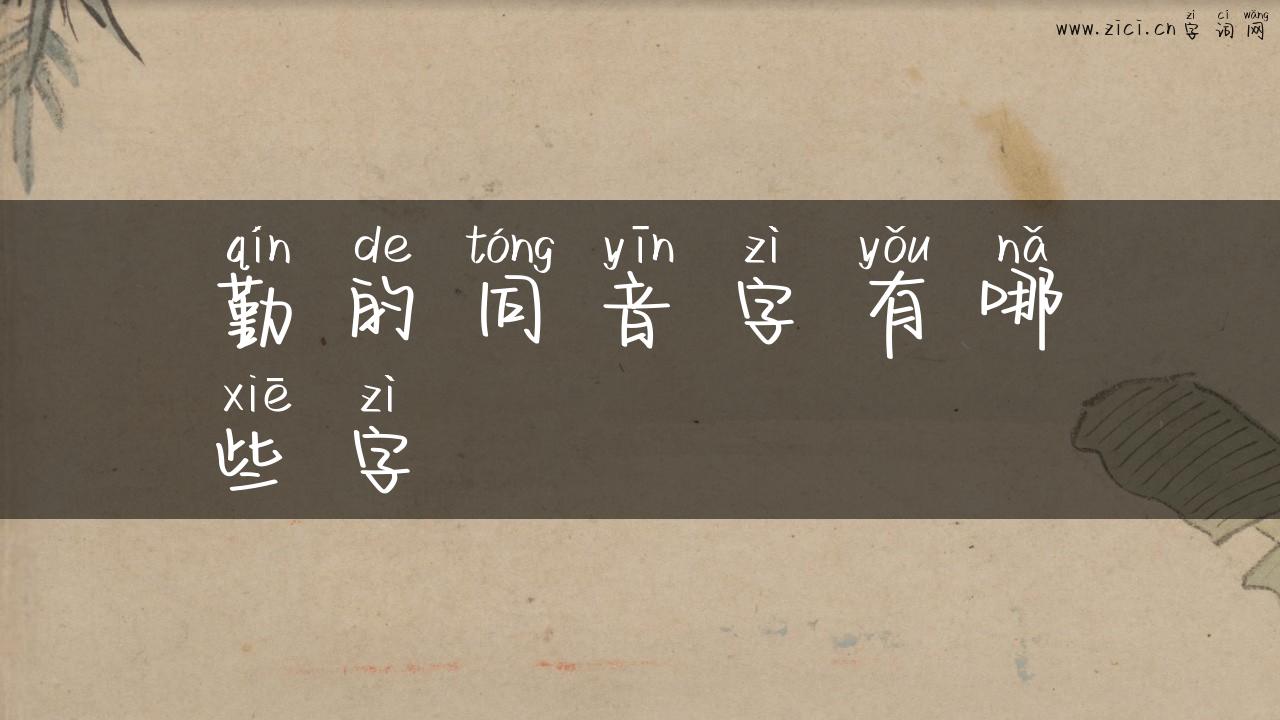 zì cí wǎng
www.zici.cn 字 词 网
qín de tóng yīn zì yǒu nǎ
勤 的 同 音 字 有 哪
xiē zì
些 字